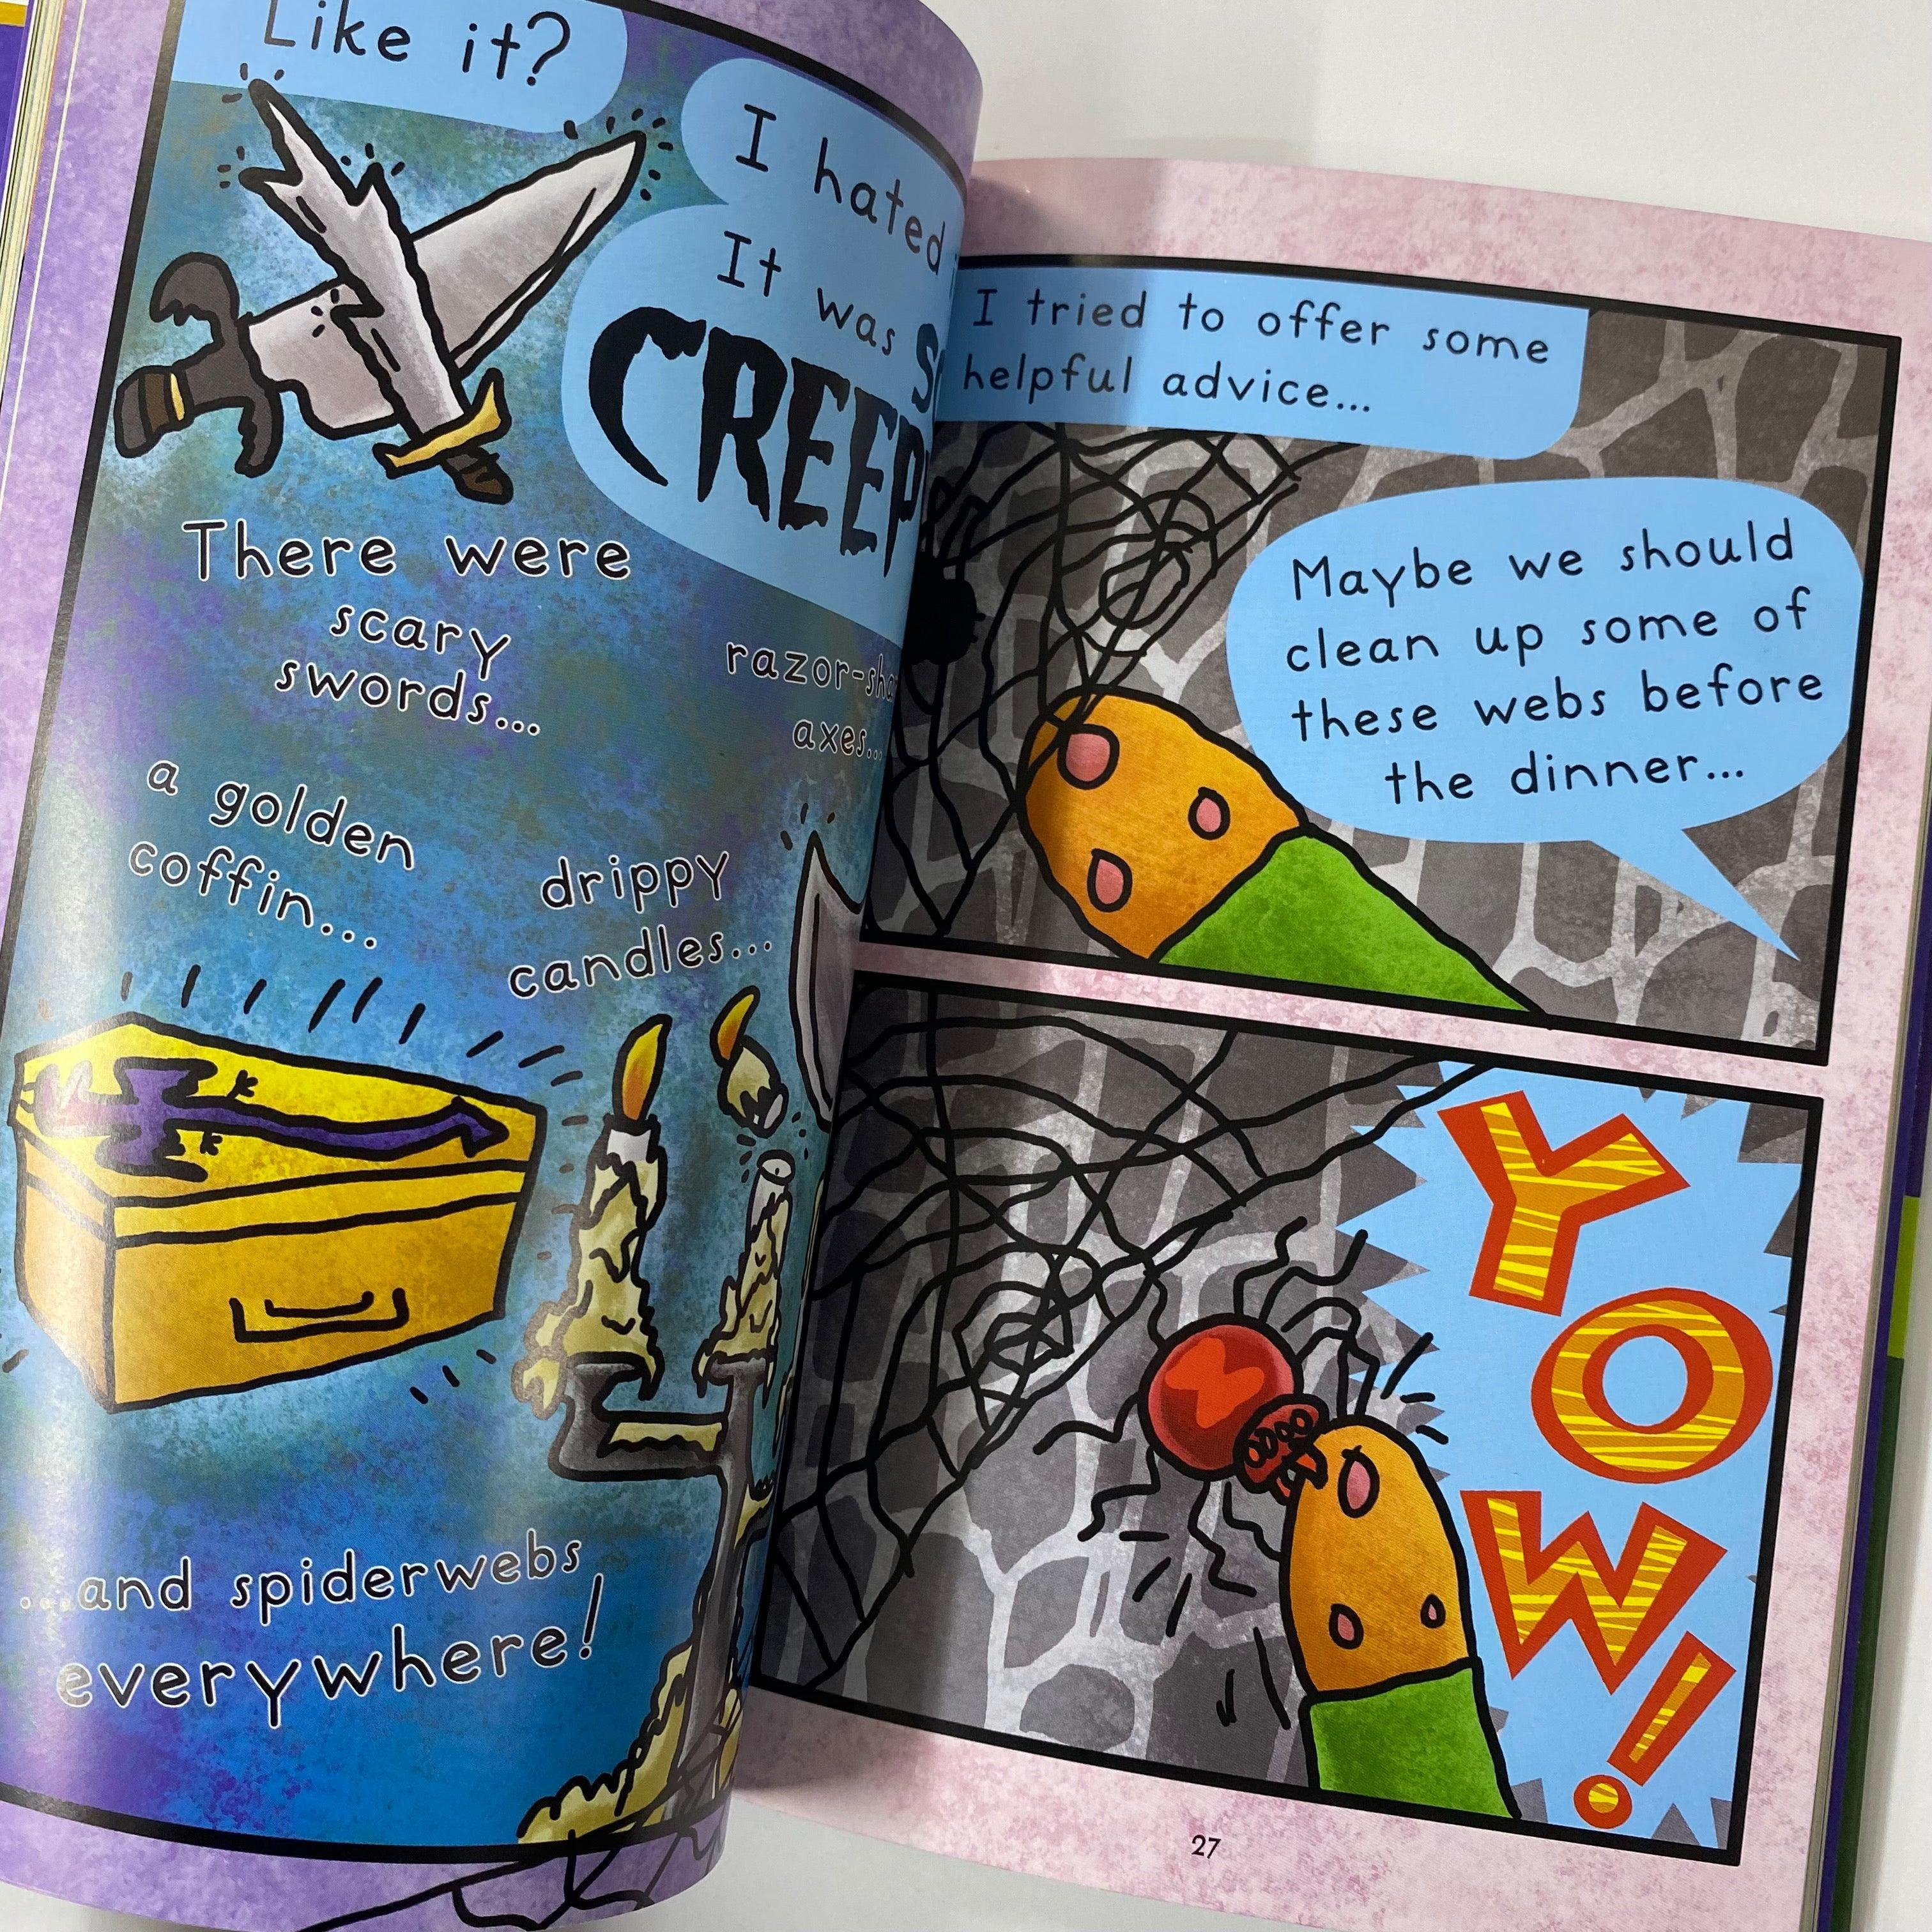 Like it?
I hated
It was
There were
scary
swords...
axes...
a golden
coffin...
drippy
candles...
...and spiderwebs
everywhere!
I tried to offer some
helpful advice...
Maybe we should
clean up some of
these webs before
the dinner...
YOW!
27